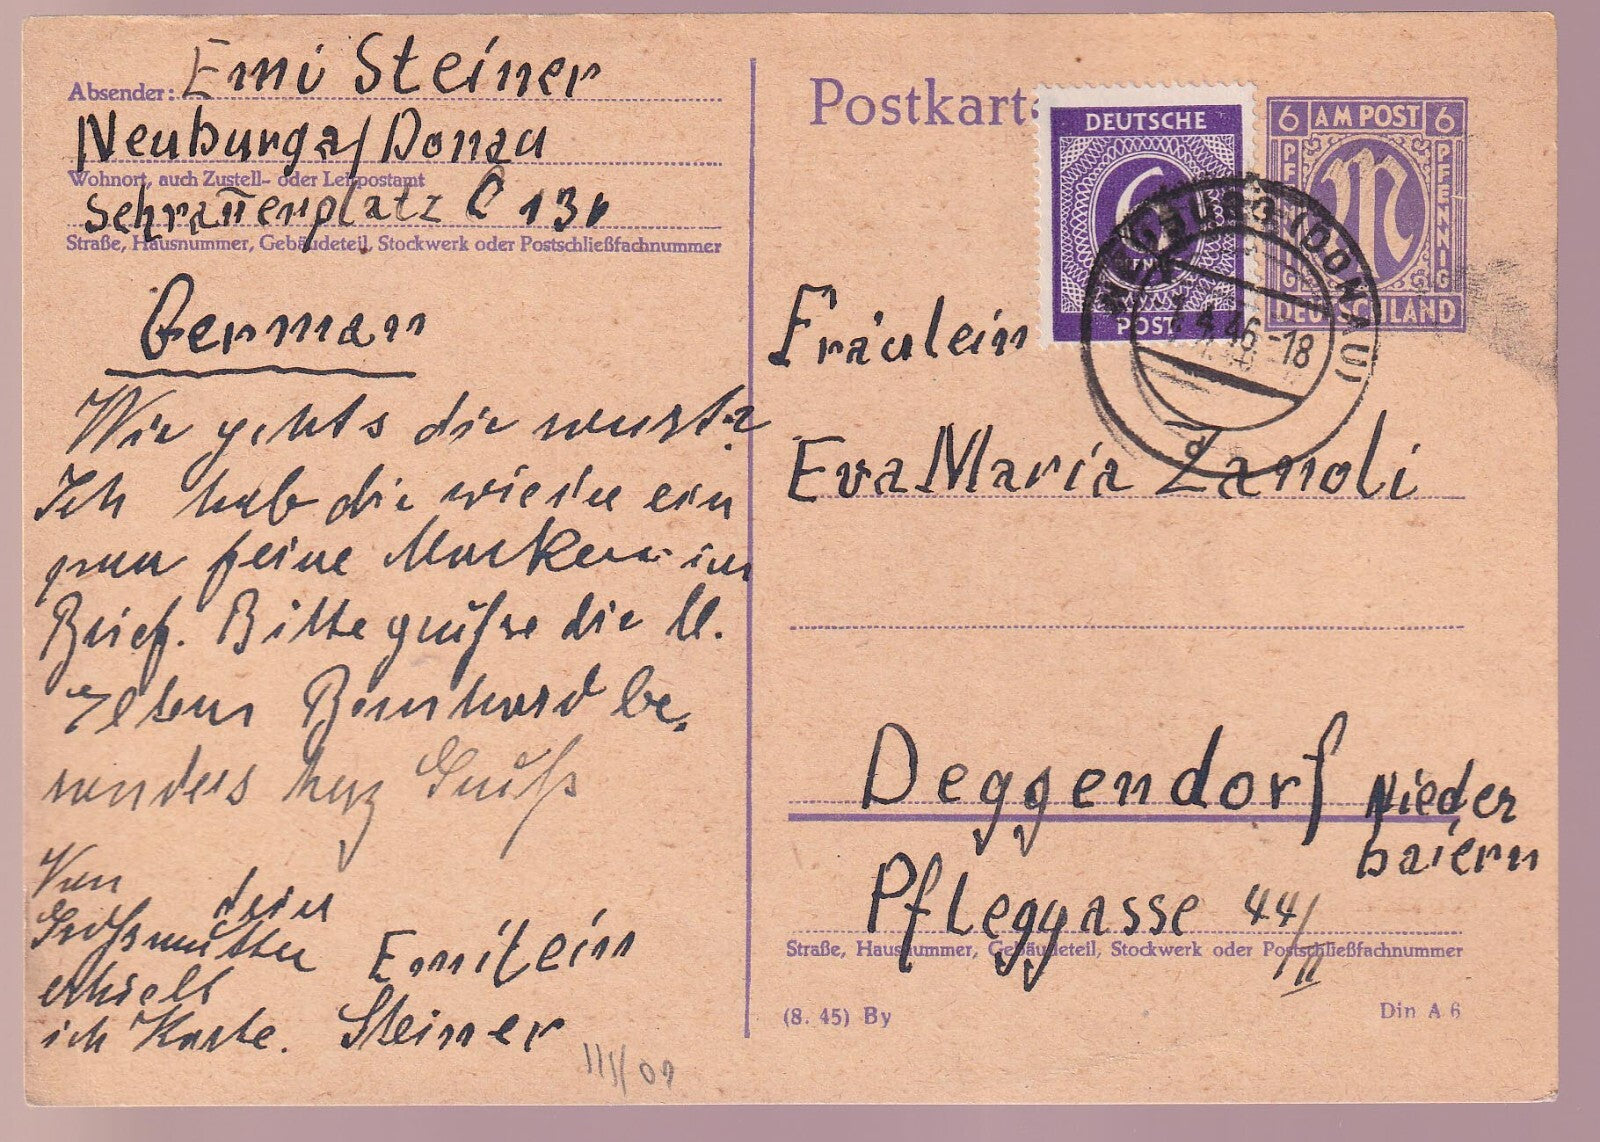 Absender: Emi Steiner
Neuburg a/Donau
Wohnort, auch Zustell- oder Leitpostamt
Schrannenplatz C 13
Straße, Hausnummer, Gebäudeteil, Stockwerk oder Postschließfachnummer
German
Wie gehts dir sonst?
Ich hab dir wieder ein
paar feine Marken im
Brief. Bitte grüsse die
Eltern Bernhard be-
sonders herz Gruß
Von dein
Großmutter
erhielt
ich Karte.
Steiner
Postkarte
DEUTSCHE
6
POST
6 AM POST 6
PFENNIG
M
PFENNIG
DEUTSCHLAND
NEUBURG (DONAU)
4.46-18
d
Fräulein
Eva Maria Zanoli
Deggendorf Nieder
baiern
Pfleggasse 44/II
Straße, Hausnummer, Gebäudeteil, Stockwerk oder Postschließfachnummer
(8. 45) By
Din A 6